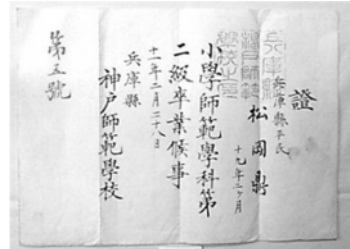 證
兵庫縣平民
松岡鼎
十九年二ヶ月
小學師範學科第
二級卒業候事
十一年二月二十八日
兵庫縣
神戸師範學校
第五號